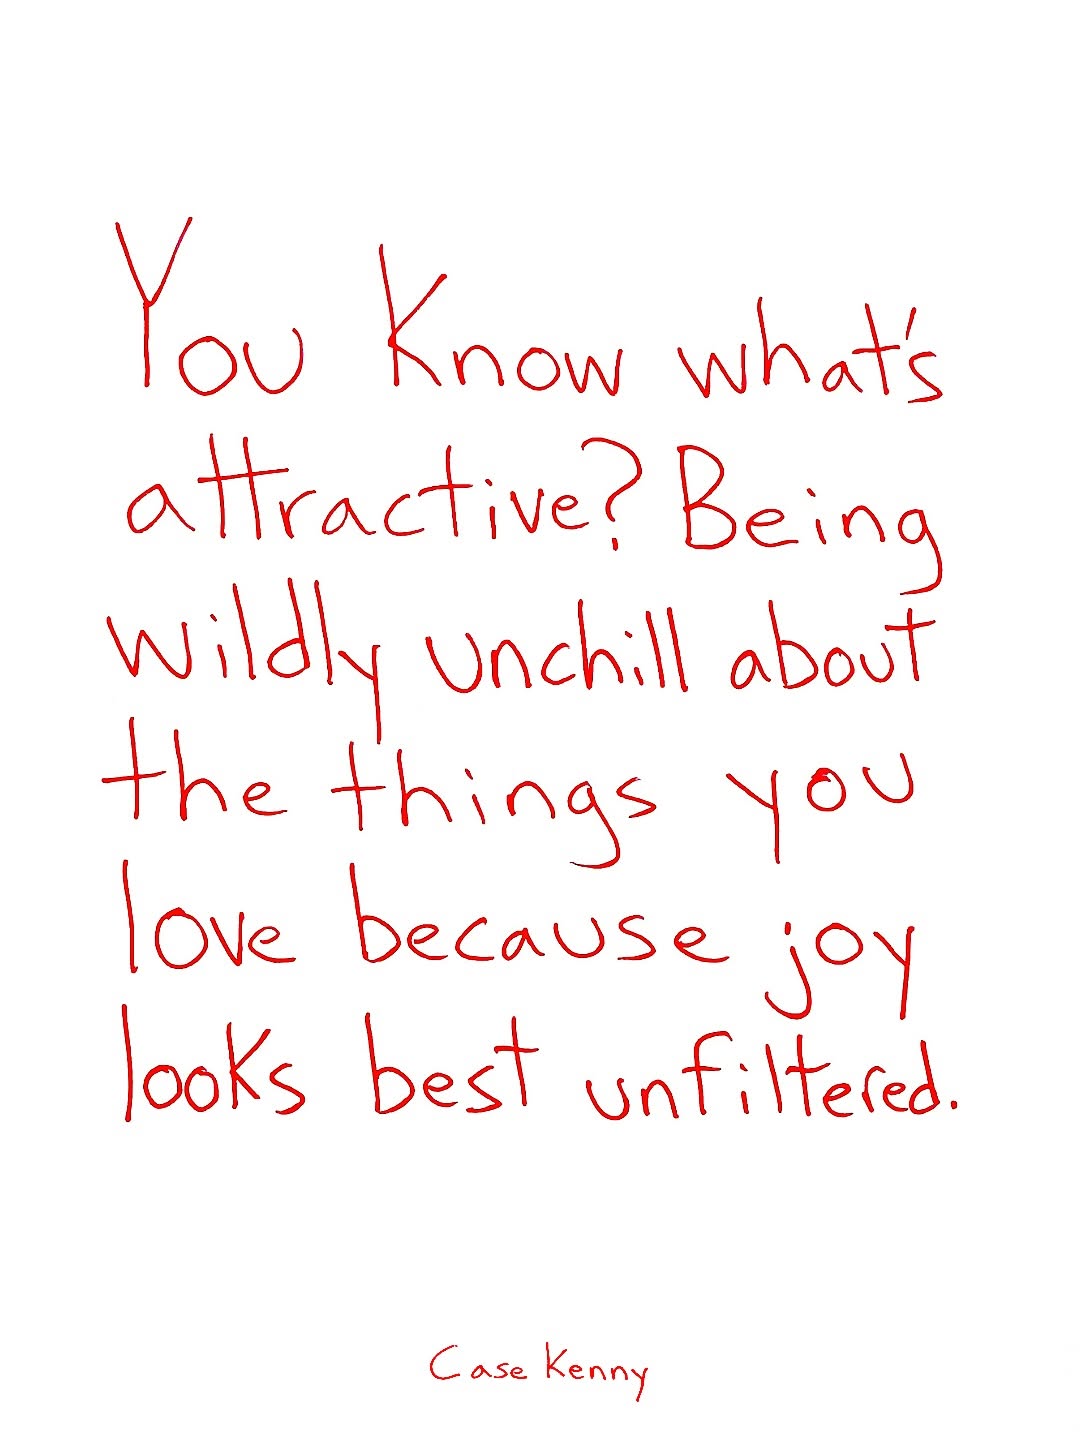 You Know what's
attractive? Being
wildly unchill about
the things you
love because joy
looks best unfiltered.
Case Kenny